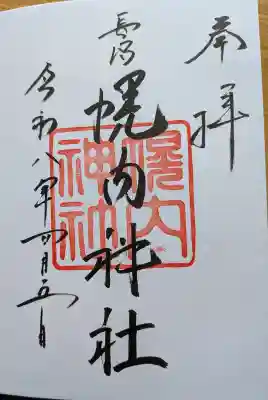 奉拝
幌内神社
令和八年四月五日
幌内
神社